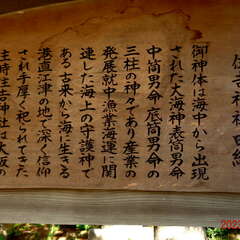 住吉神社由緒
御神体は海中から出現
された大海神表筒男命
中筒男命底筒男命の
三柱の神々であり産業の
発展就中漁業海運に関
連した海上の守護神で
ある古来から海に生きる
港直江津の地で深く信仰
され手厚く祀られてきた
主時
神社は大阪の
202